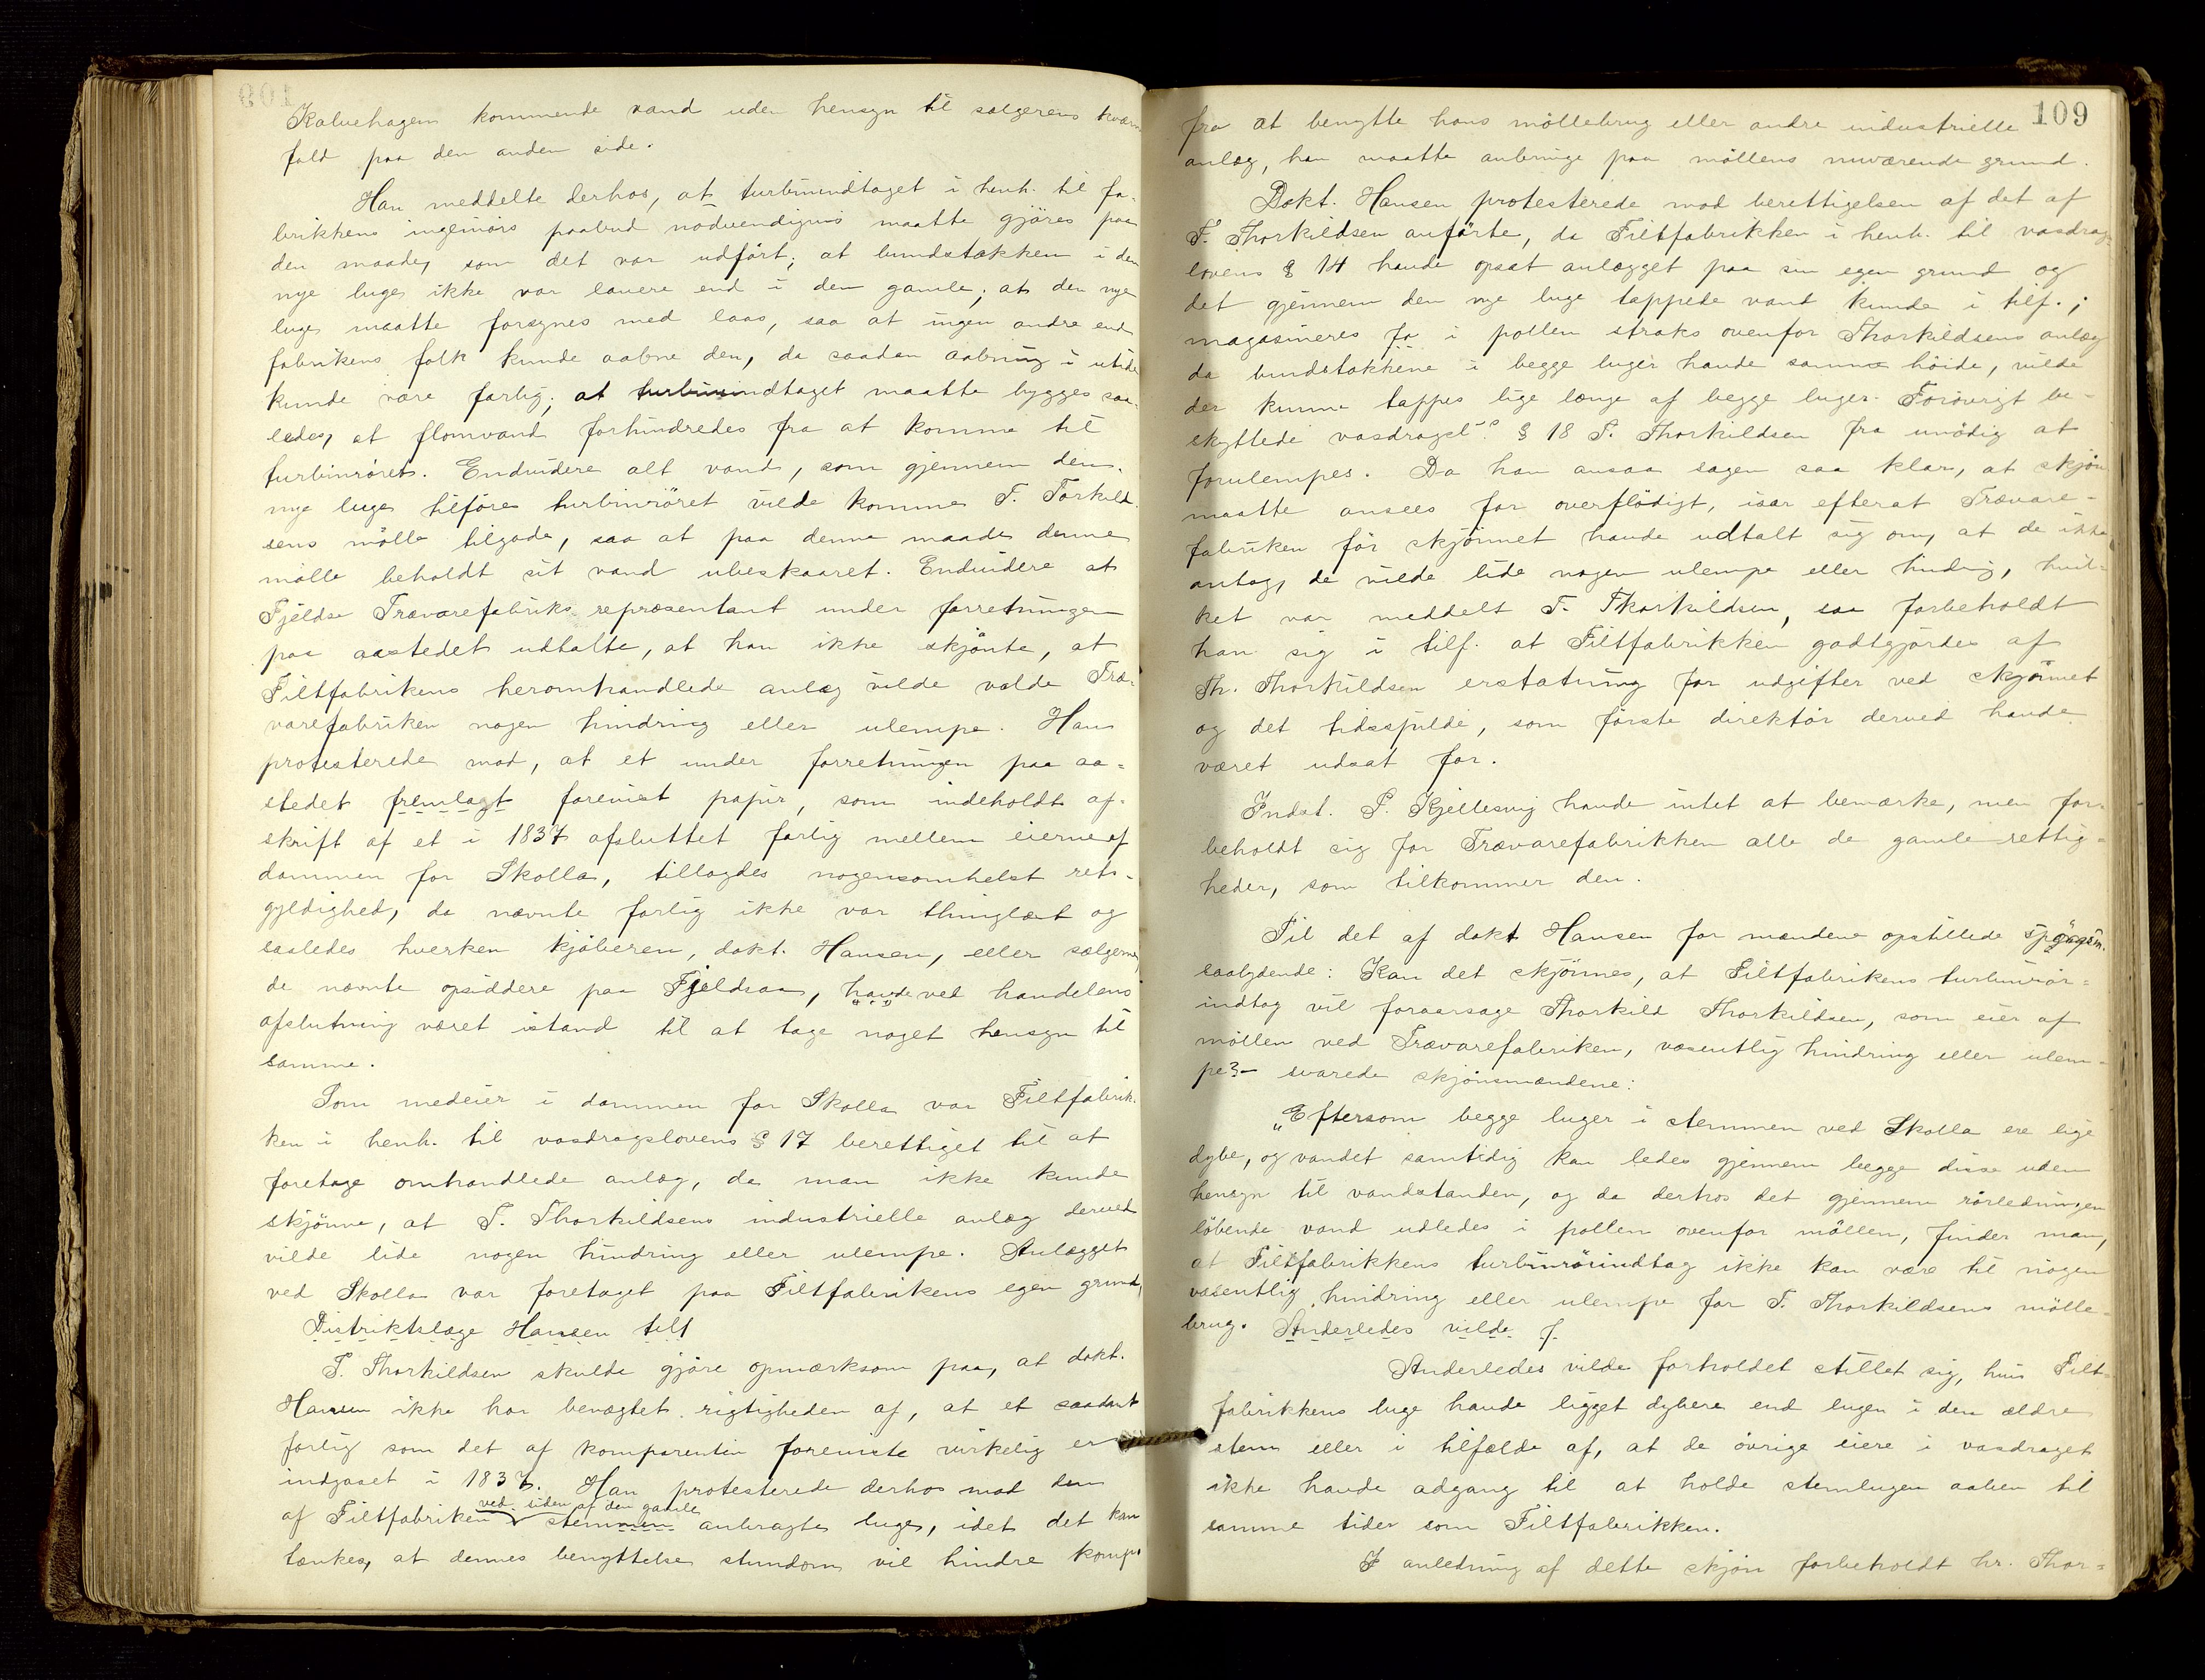 Kalvehagen kommende vand uden hensyn til sælgerens kværn
fald paa den anden side.
Han meddelte derhos, at turbinindtaget i henh. til fa-
brikkens ingeniørs paabud nødvendigvis maatte gjøres paa
den maade, som det var udført; at bundstokken i den
nye luge ikke var lavere end i den gamle; at den nye
luge maatte forsynes med laas, saa at ingen andre end
fabrikens folk kunde aabne den, da saadan aabning i utide
kunde være farlig; at turbinindtaget maatte bygges saa-
ledes, at flomvand forhindredes fra at komme til
turbinrøret. Endvidere alt vand, som gjennem den
nye luge tilføres turbinrøret vilde komme T. Torkild-
sens mølle tilgode, saa at paa denne maade denne
mølle beholdt sit vand ubeskaaret. Endvidere at
Fjeldsø Trævarefabriks repræsentant under forretningen
paa aastedet udtalte, at han ikke skjønte, at
Filtfabrikens heromhandlede anlæg vilde volde Træ-
varefabriken nogen hindring eller ulempe. Han
protesterede mod, at et under forretningen paa aa-
stedet fremlagt forevist papir, som indeholdt af-
skrift af et i 1837 afsluttet forlig mellem eierne af
dammen for Skolla, tillagdes nogensomhelst rets-
gyldighed, da nævnte forlig ikke var thinglæst og
saaledes hverken kjøberen, dokt. Hansen, eller sælgerne,
de nævnte opsiddere paa Fjeldsaa, havde ved handelens
afslutning været istand til at tage noget hensyn til
samme.
Som medeier i dammen for Skolla var Filtfabrik-
ken i henh. til vasdragslovens § 17 berettiget til at
foretage omhandlede anlæg, da man ikke kunde
skjønne, at T. Thorkildsens industrielle anlæg derved
vilde lide nogen hindring eller ulempe. Anlægget
ved Skolla var foretaget paa Filtfabrikens egen grund,
Distriktslæge Hansen till
T. Thorkildsen skulde gjøre opmærksom paa, at dokt.
Hansen ikke har benægtet rigtigheden af, at et saadant
forlig som det af komparenten foreviste virkelig er
indgaaet i 1837. Han protesterede derhos mod den
af Filtfabriken ved siden af den gamle stemmen anbragte luge, idet det kan
tænkes, at dennes benyttelse stundom vil hindre komp.
109
fra at benytte hans møllebrug eller andre industrielle
anlæg, han maatte anbringe paa møllens nuværende grund.
Dokt. Hansen protesterede mod berettigelsen af det af
T. Thorkildsen anførte, da Filtfabrikken i henh. til vasdrags
lovens § 14 havde opsat anlægget paa sin egen grund og
det gjennem den nye luge tappede vand kunde i tilf.
magasineres i pollen straks ovenfor Thorkildsens anlæg
da bundstokkene i begge luger havde samme høide, vilde
der kunne tappes lige længe af begge luger. Forøvrigt be-
skyttede vasdragsl. § 18 T. Thorkildsen fra unødig at
forulempes. Da han ansaa sagen saa klar, at skjøn
maatte ansees for overflødigt, især efterat Trævare-
fabriken før skjønnet havde udtalt sig om, at de ikke
antog, de vilde lide nogen ulempe eller hindring, hvil-
ket var meddelt T. Thorkildsen, saa forbeholdt
han sig i tilf. at Filtfabrikken godtgjordes af
Th. Thorkildsen erstatning for udgifter ved skjønnet
og det tidsspilde, som første direktør derved havde
været udsat for.
Indst. P. Kjellesvig havde intet at bemærke, men for-
beholdt sig for Trævarefabrikken alle de gamle rettig-
heder, som tilkommer den.
Til det af dokt Hansen for mændene opstillede spørgsm.
saalydende: Kan det skjønnes, at Filtfabrikens turbinrør-
indtag vil foraarsage Thorkild Thorkildsen, som eier af
møllen ved Trævarefabriken, væsentlig hindring eller ulem-
pe?- svarede skjønsmændene:
„Eftersom begge luger i stemmen ved Skolla ere lige
dybe, og vandet samtidig kan ledes gjennem begge disse uden
hensyn til vandstanden, og da derhos det gjennem rørledningen
løbende vand udledes i pollen ovenfor møllen, finder man,
at Filtfabrikkens turbinrørindtag ikke kan være til nogen
væsentlig hindring eller ulempe for T. Thorkildsens mølle-
brug. Anderledes vilde f
Anderledes vilde forholdet stillet sig, hvis Filt-
fabrikkens luge havde ligget dybere end lugen i den ældre
stem eller i tilfælde af, at de øvrige eiere i vasdraget
ikke havde adgang til at holde stemlugen aaben til
samme tider som Filtfabrikken.
I anledning af dette skjøn forbeholdt hr. Thor-